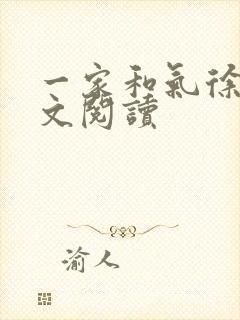 一家和氣徐
文閱讀
渝人